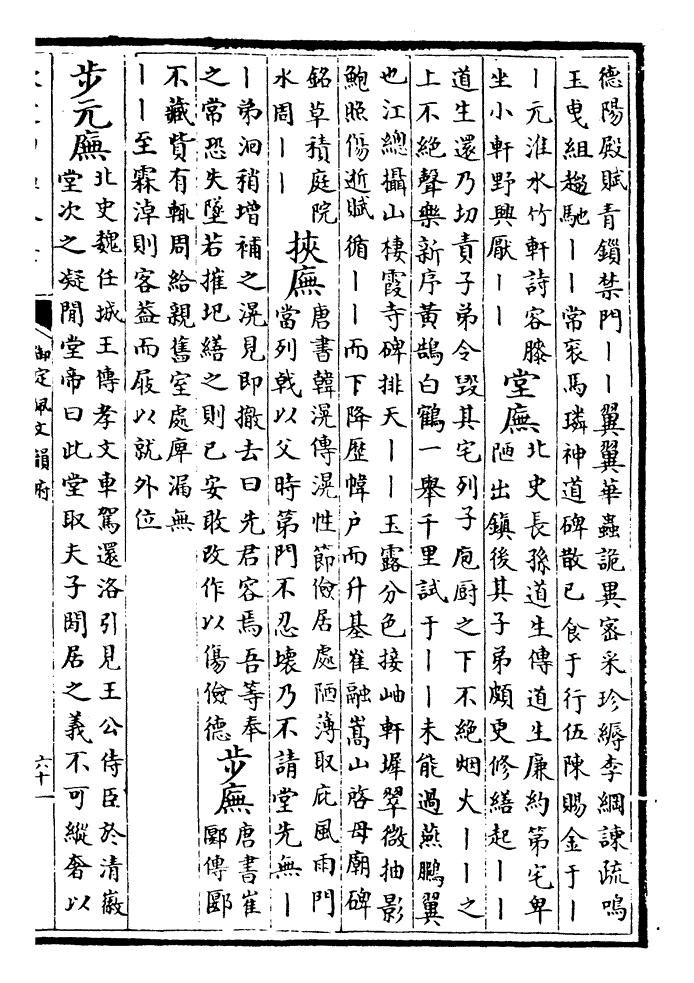 德陽殿賦青鎖禁門丨丨翼翼華蟲詭異密采珍縟李綱諫疏鳴
玉曵組趨馳丨丨常衮馬璘神道碑散已食于行伍陳賜金于丨
丨元淮水竹軒詩客滕
坐小軒野興厭丨丨
堂廡
北史長孫道生傳道生廉約第宅卑
陋出鎮後其子弟頗更修繕起丨丨
道生還乃切責子弟令毀其宅列子庖厨之下不絶烟火丨丨之
上不絶聲樂新序黃鵠白鶴一舉千里試于丨丨未能過燕鵬翼
也江總攝山棲霞寺碑排天丨丨玉露分色接岫軒墀翠微抽影
鮑照傷逝賦循丨丨而下降歴幃户而升基崔融嵩山啓母廟碑
銘草積庭院
水周丨丨
挾廡
唐書韓滉傳滉性節儉居處陋薄取庇風雨門
當列戟以父時第門不忍壞乃不請堂先無丨
丨弟洄稍增補之滉見即撤去曰先君容焉吾等奉
之常恐失墜若摧圯繕之則已安敢改作以傷儉德
步廡
唐書崔
郾傳郾
不藏貲有輒周給親舊室處庳漏無
丨丨至霖淖則客葢而屐以就外位
步元廡
北史魏任城王傳孝文車駕還洛引見王公侍臣於清徽
堂次之凝閒堂帝曰此堂取夫子閒居之義不可縱奢以
御定佩文韻府
六十一